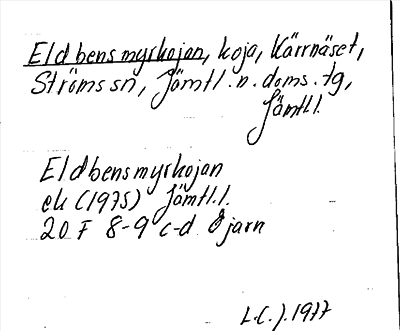 Eldbensmyrkojan, koja, Kärrnäset,
Ströms sn, Jämtl. n. doms. tg,
Jämtl.l.
Eldbensmyrkojan
ek (1975) Jämtl.l.
20 F 8-9 c-d Öjarn
L.C.J. 1977